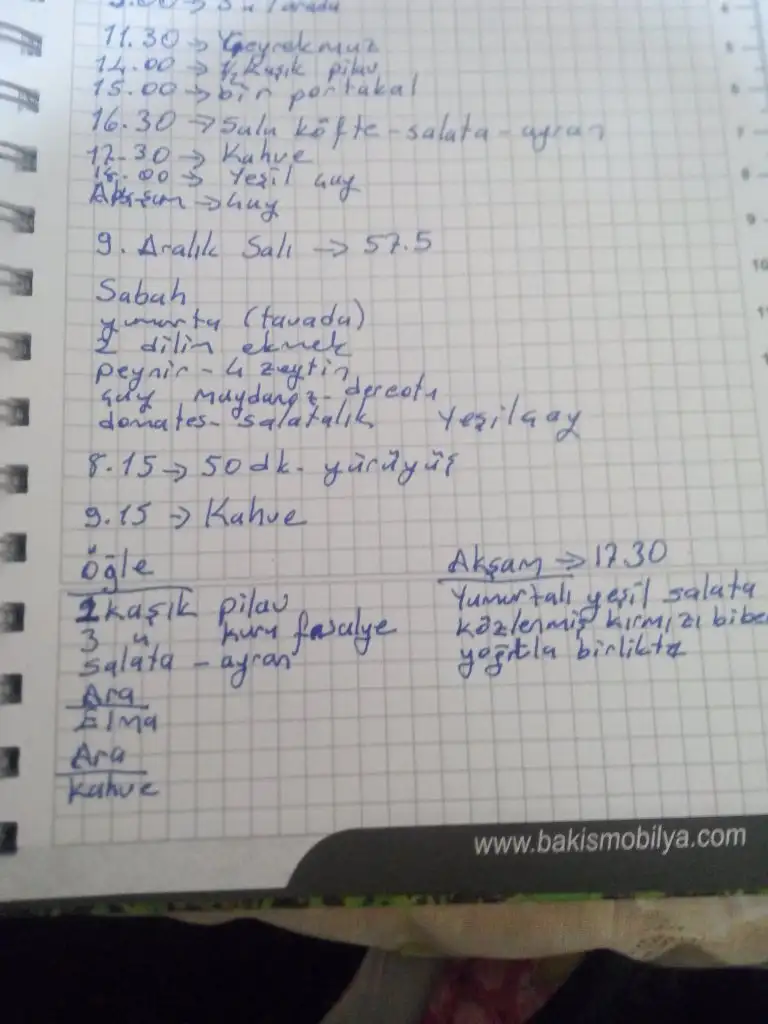 11.30 → Çeyrek muz
14.00 → 1/2 Kaşık pilav
15.00 → bir portakal
16.30 → Sulu köfte - salata - ayran
17.30 → Kahve
18.00 → Yeşil çay
Akşam → Çay
9. Aralık Salı → 57.5
Sabah
yumurta (tavada)
2 dilim ekmek
peynir - 4 zeytin
çay maydanoz - dereotu
domates - salatalık Yeşil çay
8.15 → 50 dk. yürüyüş
9.15 → Kahve
Öğle
2 kaşık pilav
3 " kuru fasulye
salata - ayran
Ara
Elma
Ara
kahve
Akşam → 17.30
Yumurtalı yeşil salata
közlenmiş kırmızı bibe
yoğurtla birlikte
www.bakismobilya.com